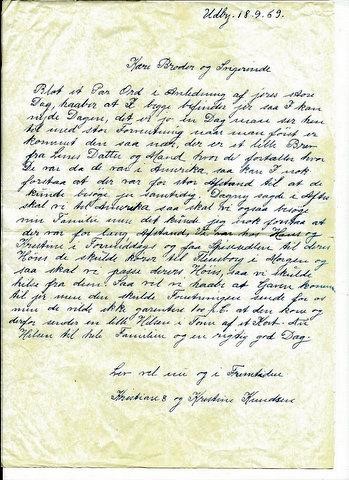 Udby. 18.9.69.
Kære Broder og Ingerinde
Blot et Par Ord i Anledning af jeres store
Dag, haaber at I begge befinder jer saa I kan
nyde Dagen, det er jo en Dag man ser hen
til med stor Forventning naar man først er
kommet den saa nær, der er et lille Brev
fra Lines Datter og Mand, hvor de fortalte hvor
De var da de var i Amerika, saa kan I nok
forstaa at der var for stor Afstand til at de
kunde besøge jer samtidig, Dagny sagde i Aften
skal vi til Amerika saa skal vi ogsaa besøge
min Familie men det kunde jeg nok forstaa at
der var for lang Afstand, Vi var hos Hans og
Kristine i Formiddags og faa Spisesedlen til deres
Høns de skulde køre til Flensborg i Morgen og
saa skal vi passe deres Høns, saa vi skulde
hilse fra dem. Saa vil vi haabe at Gaven kommer
til jer men den skulde Forretningen sende for os
men de vilde ikke garantere for p.t. at den kom og
derfor sender en lille Hilsen i Form af et Kort. En
Hilsen til hele Familien og en rigtig god Dag.
Lev vel nu og i Fremtiden
Kristian S og Kristine Knudsen